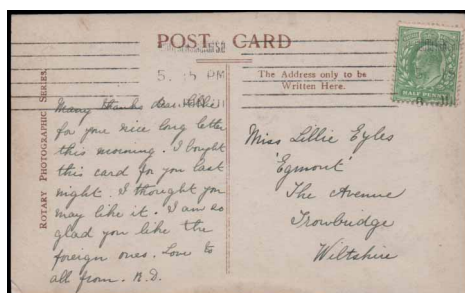 POST CARD
5. 15 PM
The Address only to be
Written Here.
HALF PENNY
ROTARY PHOTOGRAPHIC SERIES.
Many thanks dear Lillie
for your nice long letter
this morning. I bought
this card for you last
night. I thought you
may like it. I am so
glad you like the
foreign ones. Love to
all from. R.D.
Miss Lillie Eyles
'Egmont'
The Avenue
Trowbridge
Wiltshire